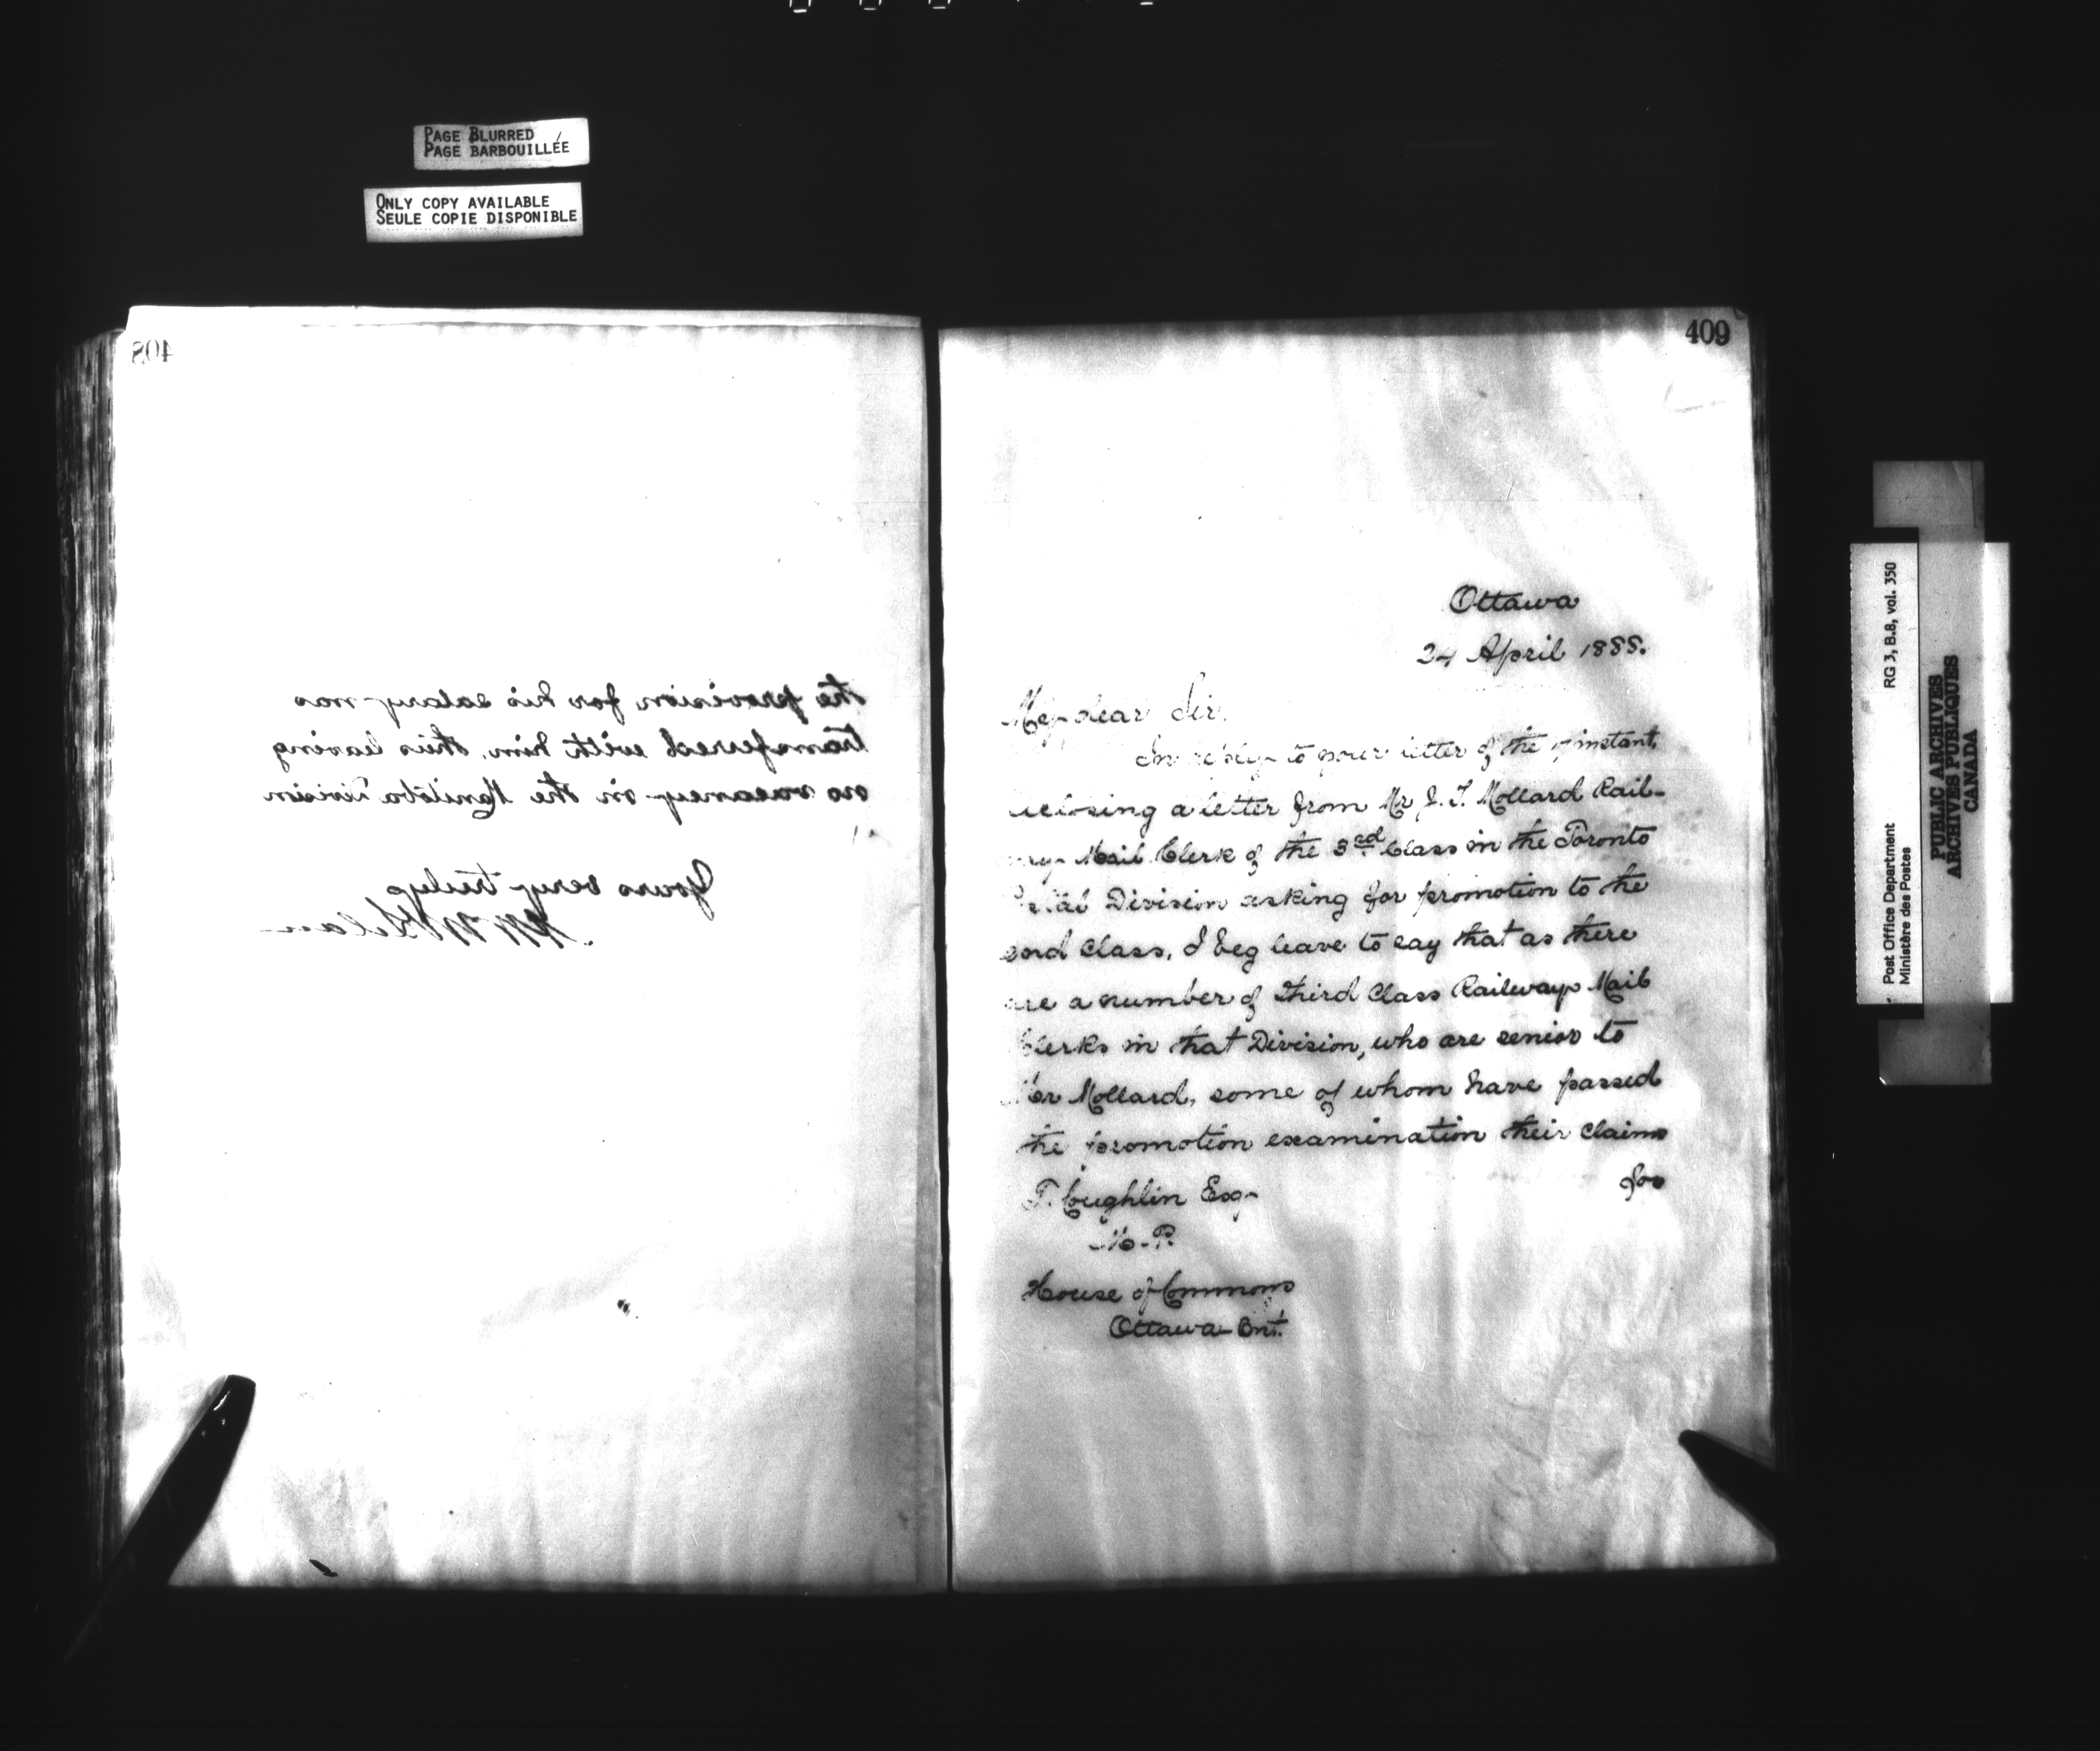 PAGE BLURRED
PAGE BARBOUILLÉE
ONLY COPY AVAILABLE
SEULE COPIE DISPONIBLE
408
the provision for his salary was
transferred with him, this leaving
no vacancy in the Manitoba Division
Yours very truly
409
Ottawa
24 April 1888.
My dear Sir,
In reply to your letter of the instant,
a letter from Mr J. T. Mollard Rail-
Mail Clerk of the 3rd Class in the Toronto
Division asking for promotion to the
cond Class, I beg leave to say that as there
are a number of third Class Railway Mail
Clerks in that Division, who are senior to
Mr Mollard, some of whom have passed
the promotion examination their claims
for
T. Coughlin Esq
M.P.
House of Commons
Ottawa Ont.
Post Office Department RG 3, B.8, vol. 350
Ministère des Postes
PUBLIC ARCHIVES
ARCHIVES PUBLIQUES
CANADA